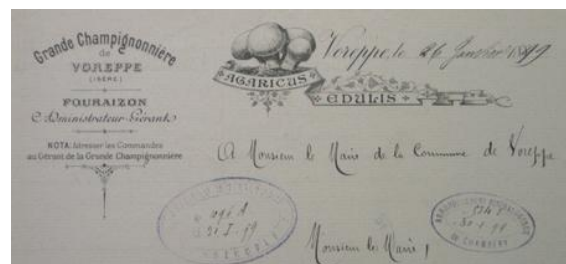 Grande Champignonnière
de
VOREPPE
(ISÈRE)
FOURAIZON
Administrateur-Gérant
NOTA: Adresser les Commandes
au Gérant de la Grande Champignonnière
AGARICUS
EDULIS
Voreppe, le 26 Janvier 1899
A Monsieur le Maire de la Commune de Voreppe
31-1-99
DE CHAMBERY
Monsieur le Maire,